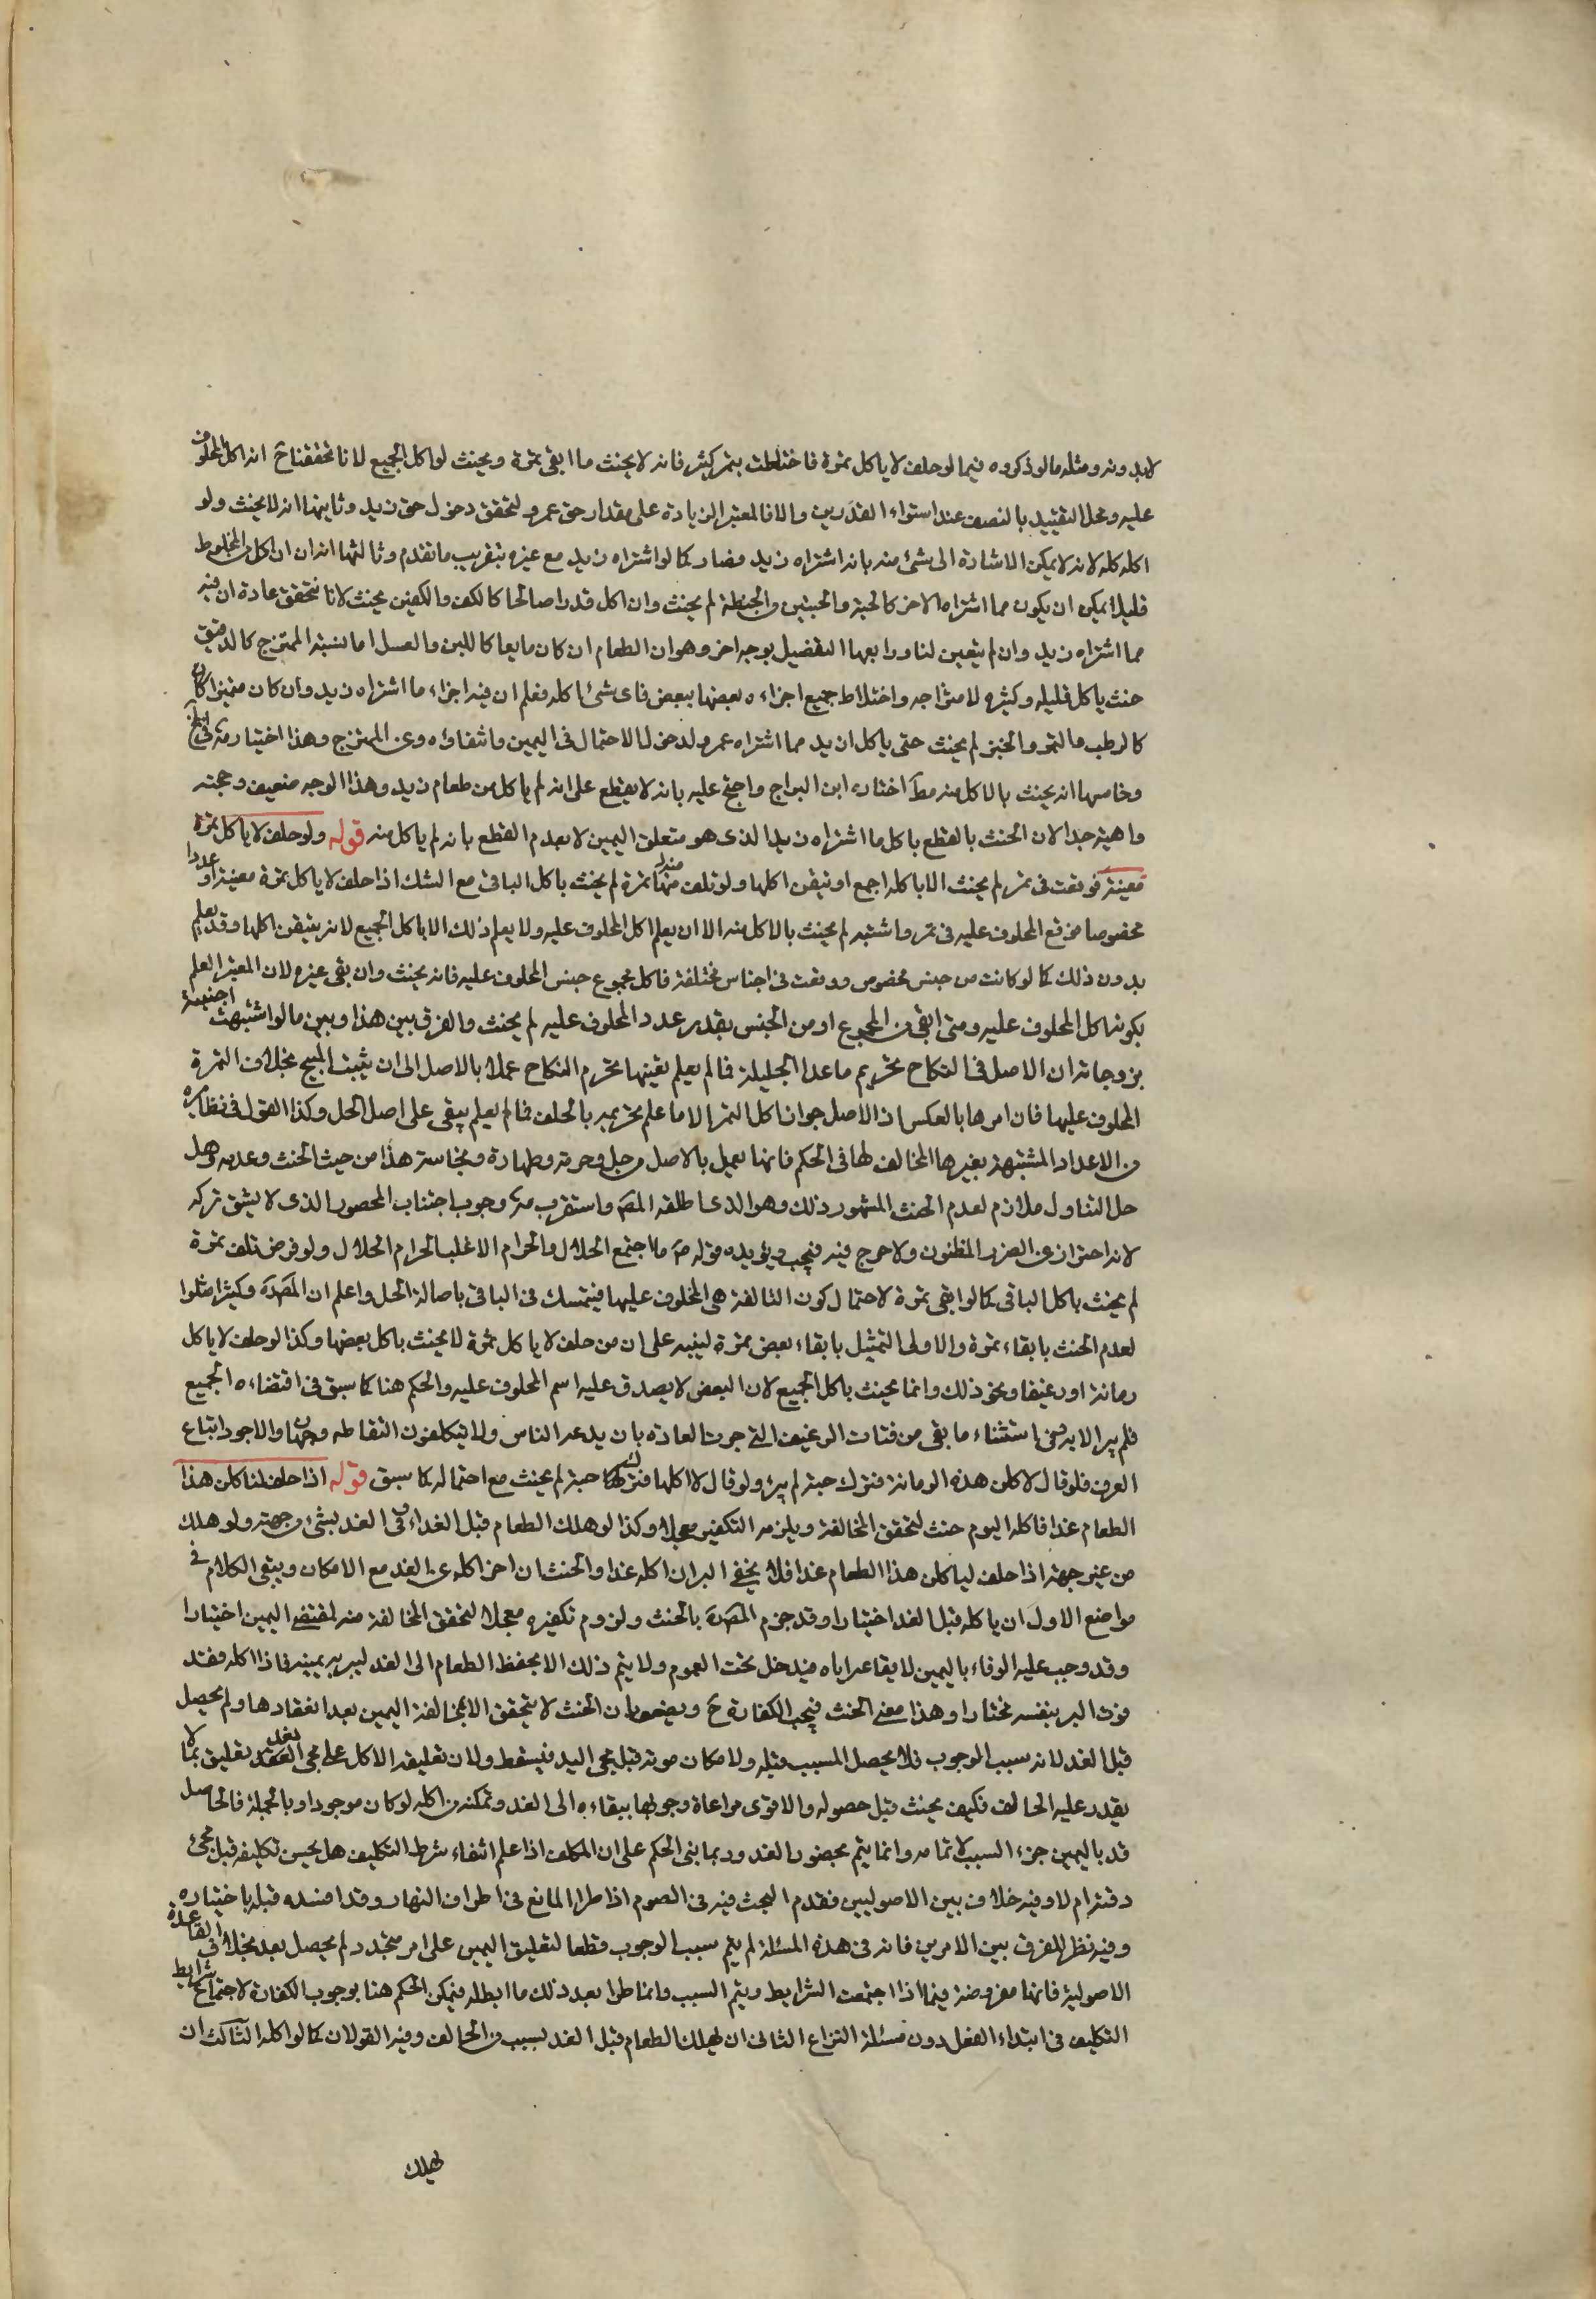 لا بدونه ومثله مالو ذكروه فيما لو حلف لا ياكل تمرة فاختلطت بتمر كثير فانه لا يحنث ما ابقى تمرة ويحنث لو اكل الجميع لانا تحققناح انه اكل المحلوف
عليه ومحل التقييد بالنصف عند استواء القدرين والا فالمعتبر الزيادة على مقدار حق عمرو لتحقق دخول حق زيد وثانيها انه لا يحنث ولو
اكله كله لانه لا يمكن الاشارة الى شئ منه بانه اشتراه زيد فصار كما لو اشتراه زيد مع غيره بتقريب ما تقدم وثالثها انه ان اكل من المخلوط
قليلا يمكن ان يكون مما اشتراه الاخر كالحبة والحبتين من الحنطة لم يحنث وان اكل قدرا صالحا كالكف والكفين يحنث لانا نتحقق عادة ان فيه
مما اشتراه زيد وان لم يتعين لنا ورابعها التفصيل بوجه اخر وهو ان الطعام ان كان مايعا كاللبن والعسل او ما يشبه الممتزج كالدقيق
حنث ياكل قليله وكثيره لامتزاجه واختلاط جميع اجزاءه بعضها ببعض فاى شئ اكله فعلم ان فيه اجزاء ما اشتراه زيد وان كان متميزا كان
كالرطب والتمر والخبز لم يحنث حتى ياكل ازيد مما اشتراه عمرو لدخول الاحتمال فى اليمين وانتفاؤه من الممتزج وهذا اختياره فى لف
وخامسها انه يحنث بالاكل منه مط اختاره ابن البراج واحتج عليه بانه لا يقطع على انه لم ياكل من طعام زيد وهذا الوجه ضعيف وحجته
واهية جدا لان الحنث بالقطع باكل ما اشتراه زيد الذى هو متعلق اليمين لا بعدم القطع بانه لم ياكل منه قوله ولو حلف لا ياكل تمرة
معينة فوقعت فى تمر لم يحنث الا باكله اجمع او تيقن اكلها ولو تلف منها تمرة لم يحنث باكل الباقى مع الشك اذا حلف لا ياكل تمرة معينة او عددا
مخصوصا فوقع المحلوف عليه فى تمر واشتبه لم يحنث بالاكل منه الا ان يعلم اكل المحلوف عليه ولا يعلم ذلك الا باكل الجميع لانه يتيقن اكلها وقد يعلم
بدون ذلك كما لو كانت من جنس مخصوص ووقعت فى اجناس مختلفة فاكل مجموع جنس المحلوف عليه فانه يحنث وان بقى غيره لان المعتبر العلم
بكونه اكل المحلوف عليه ومتى ابقى من المجموع او من الجنس بقدر عدد المحلوف عليه لم يحنث والفرق بين هذا وبين ما لو اشتبهت اجنبية
بزوجاته ان الاصل فى النكاح تحريم ما عدا الحليلة فما لم يعلم بعينها يحرم النكاح عملا بالاصل الى ان يثبت المبيح بخلاف التمرة
المحلوف عليها فان امرها بالعكس اذ الاصل جواز اكل التمر الا ما علم تحريمه بالحلف فما لم يعلم يبقى على اصل الحل وكذا القول فى نظايره
من الاعداد المشتبهة بغيرها المخالف لها فى الحكم فانها يعمل بالاصل من حل وحرمة وطهارة ونجاسة هذا من حيث الحنث وعدمه وهل
حل التناول ملازم لعدم الحنث المشهور ذلك وهو الذى اطلقه المص واستقرب مه وجوب اجتناب المحصور الذى لا يشق تركه
لانه احتراز عن الضرر المظنون ولا حرج فيه فيجب ويؤيده قوله ص ما اجتمع الحلال والحرام الا غلب الحرام الحلال ولو فرض تلف تمرة
لم يحنث باكل الباقى كما لو ابقى تمرة لاحتمال كون التالفة هى المحلوف عليها فيتمسك فى الباقى باصالة الحل واعلم ان المصره وكثيرا مثلوا
لعدم الحنث بابقاء تمرة والاولى التمثيل بابقاء بعض تمرة لينبه على ان من حلف لا ياكل تمرة لا يحنث باكل بعضها وكذا لو حلف لا ياكل
رمانة او رغيفا ونحو ذلك وانما يحنث باكل الجميع لان البعض لا يصدق عليه اسم المحلوف عليه والحكم هنا كما سبق فى اقتضاءه الجميع
فلم يبر الا به وفى استثناء ما بقى من فتات الرغيف التى جرت العادة بان يدعه الناس ولا يتكلفون التقاطه وجهان والاجود اتباع
العرف فلو قال لاكلن هذه الرمانة فترك حبة لم يبر ولو قال لا اكلها فترك حبة لم يحنث مع احتماله كما سبق قوله اذا حلف لناكلن هذا
الطعام غدا فاكله اليوم حنث لتحقق المخالفة ويلزمه التكفير معجلا وكذا لو هلك الطعام قبل الغد او فى الغد بشئ من جهته ولو هلك
من غير جهته اذا حلف لياكلن هذا الطعام غدا فلا يخفى البر ان اكله غدا والحنث ان اخر اكله عن الغد مع الامكان ويبقى الكلام فى
مواضع الاول ان ياكله قبل الغد اختيارا وقد جزم المصره بالحنث ولزوم تكفيره معجلا لتحقق المخالفة منه لمقتضى اليمين اختيارا
وقد وجب عليه الوفاء باليمين لايقاعه اياه فيدخل تحت العموم ولا يتم ذلك الا بحفظ الطعام الى الغد ليبر به يمينه فاذا اكله فقد
فوت البر بنفسه مختارا وهذا معنى الحنث فيجب الكفارة ح ويضعف بان الحنث لا يتحقق الا بمخالفة اليمين بعد انعقادها ولم يحصل
قبل الغد لانه سبب الوجوب فلا يحصل المسبب قبله ولامكان موته قبل مجئ الغد فيسقط ولان تعليقه الاكل على مجئ الغد تعليق بما لا
يقدر عليه الحالف فكيف يحنث قبل حصوله والاقوى مراعاة وجوبها ببقاءه الى الغد وتمكنه من اكله لو كان موجودا وبالجملة فالحاصل
قد باليمين جزء السبب لا تمامه وانما يتم بحضور الغد وربما بنى الحكم على ان المكلف اذا علم انتفاء شرط التكليف هل يحسن تكليفه قبل مجئ
وقته ام لا وفيه خلاف بين الاصوليين فقدم البحث فيه فى الصوم اذا طرا المانع فى اطراف النهار وقد افسده قبله باختياره
وفيه نظر للفرق بين الامرين فانه فى هذه المسئلة لم يتم سبب الوجوب قطعا لتعليق اليمين على امر متجدد لم يحصل بعد بخلاف القاعدة
الاصولية فانها مفروضة فيما اذا اجتمعت الشرايط ويتم السبب وانما طرا بعد ذلك ما ابطله فيمكن الحكم هنا بوجوب الكفارة لاجتماع شرايط
التكليف فى ابتداء الفعل دون مسئلة النزاع الثانى ان يهلك الطعام قبل الغد بسبب من الحالف وفيه القولان كما لو اكله الثالث ان
يهلك